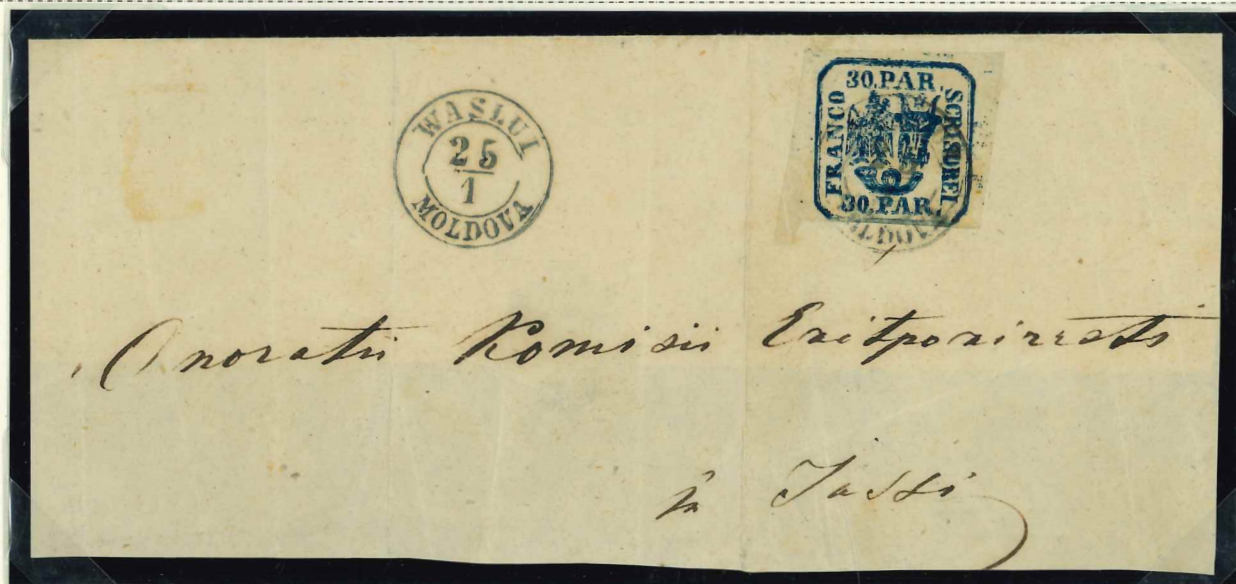 WASLUI
25
1
MOLDOVA
30.PAR.
FRANCO
SCRISOREI
30.PAR.
MOLDOVA
Onoratii Komisii
în Jassi